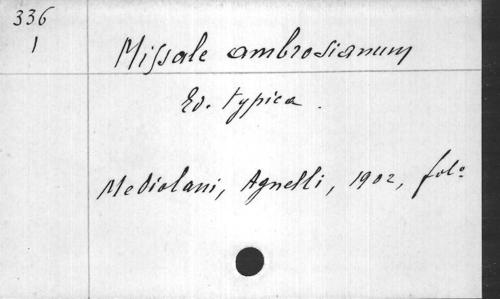 336
1
Missale ambrosianum
Ed. typica.
Mediolani, Agnelli, 1902, folº